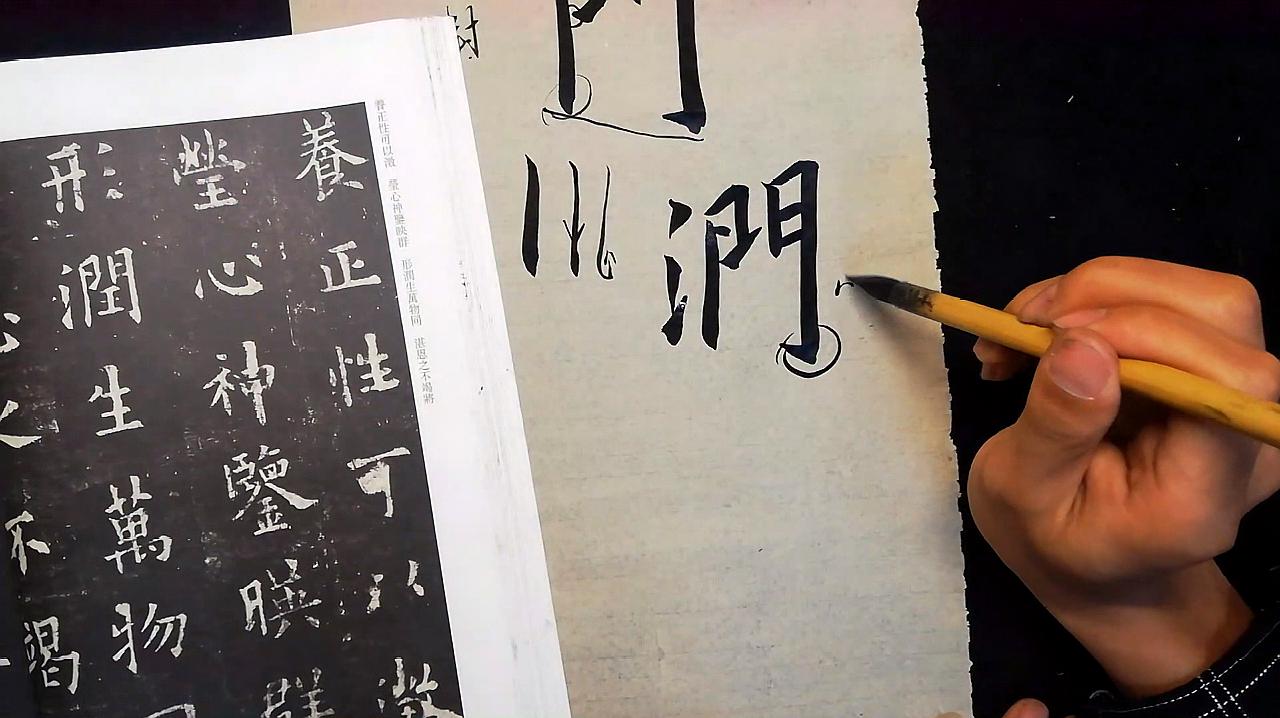 養正性可以澂 瑩心神鑒映群 形潤生萬物同 湛恩之不竭將
養正性可以澂
瑩心神鑒暎群
形潤生萬物
之不竭